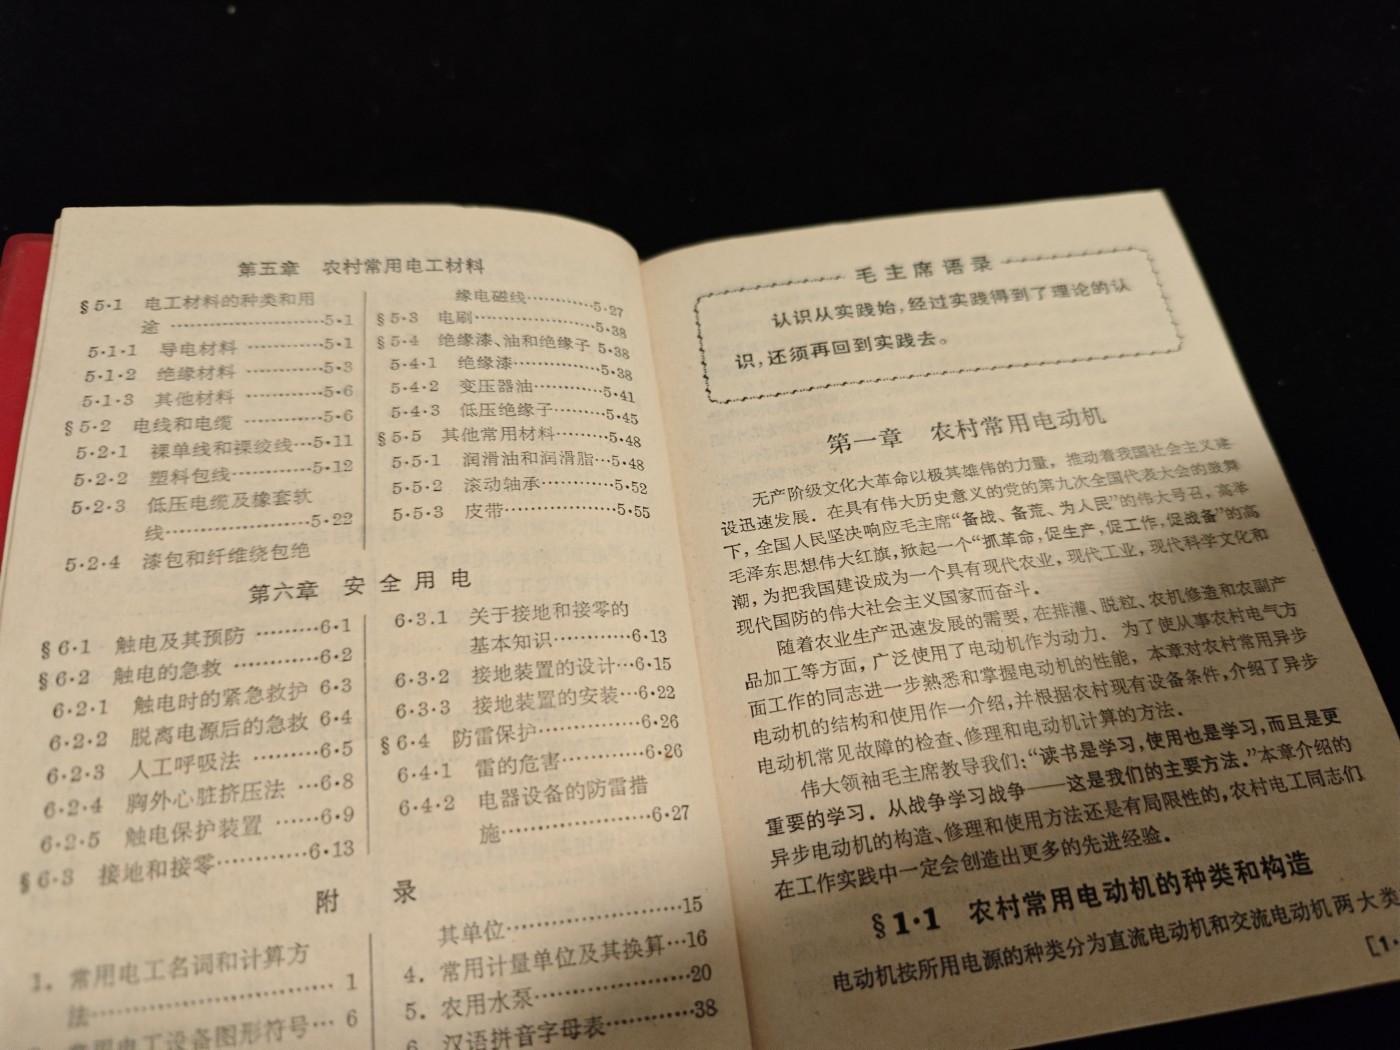 第五章 农村常用电工材料
§5·1 电工材料的种类和用
途 ………………5·1
5·1·1 导电材料 …………5·1
5·1·2 绝缘材料 …………5·3
5·1·3 其他材料 …………5·6
§5·2 电线和电缆 …………5·6
5·2·1 裸单线和裸绞线…5·11
5·2·2 塑料包线…………5·12
5·2·3 低压电缆及橡套软
线………………5·22
5·2·4 漆包和纤维绕包绝
缘电磁线…………5·27
§5·3 电刷………………5·38
§5·4 绝缘漆、油和绝缘子 5·38
5·4·1 绝缘漆……………5·38
5·4·2 变压器油…………5·41
5·4·3 低压绝缘子………5·45
§5·5 其他常用材料………5·48
5·5·1 润滑油和润滑脂…5·48
5·5·2 滚动轴承…………5·52
5·5·3 皮带………………5·55
第六章 安全用电
§6·1 触电及其预防 ………6·1
§6·2 触电的急救 …………6·2
6·2·1 触电时的紧急救护 6·3
6·2·2 脱离电源后的急救 6·4
6·2·3 人工呼吸法 ………6·5
6·2·4 胸外心脏挤压法 …6·8
6·2·5 触电保护装置 ……6·9
§6·3 接地和接零…………6·13
6·3·1 关于接地和接零的
基本知识…………6·13
6·3·2 接地装置的设计…6·15
6·3·3 接地装置的安装…6·22
§6·4 防雷保护……………6·26
6·4·1 雷的危害…………6·26
6·4·2 电器设备的防雷措
施…………………6·27
附 录
1. 常用电工名词和计算方
法………………………… 1
常用电工设备图形符号… 6
其单位…………………15
4. 常用计量单位及其换算…16
5. 农用水泵………………20
6. 汉语拼音字母表…………38
毛主席语录
认识从实践始，经过实践得到了理论的认
识，还须再回到实践去。
第一章 农村常用电动机
无产阶级文化大革命以极其雄伟的力量，推动着我国社会主义建
设迅速发展．在具有伟大历史意义的党的第九次全国代表大会的鼓舞
下，全国人民坚决响应毛主席“备战、备荒、为人民”的伟大号召，高举
毛泽东思想伟大红旗，掀起一个“抓革命，促生产，促工作，促战备”的高
潮，为把我国建设成为一个具有现代农业，现代工业，现代科学文化和
现代国防的伟大社会主义国家而奋斗．
随着农业生产迅速发展的需要，在排灌、脱粒、农机修造和农副产
品加工等方面，广泛使用了电动机作为动力．为了使从事农村电气方
面工作的同志进一步熟悉和掌握电动机的性能，本章对农村常用异步
电动机的结构和使用作一介绍，并根据农村现有设备条件，介绍了异步
电动机常见故障的检查、修理和电动机计算的方法．
伟大领袖毛主席教导我们：“读书是学习，使用也是学习，而且是更
重要的学习．从战争学习战争——这是我们的主要方法．”本章介绍的
异步电动机的构造、修理和使用方法还是有局限性的，农村电工同志们
在工作实践中一定会创造出更多的先进经验．
§1·1 农村常用电动机的种类和构造
电动机按所用电源的种类分为直流电动机和交流电动机两大类
[1·